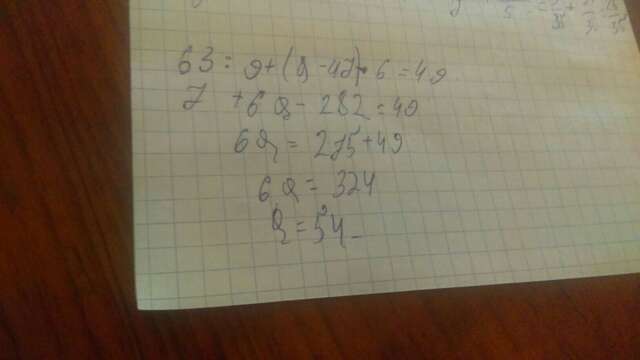 63 : 9+(a-47)·6=49
7 +6a-282=49
6a=275+49
6a=324
a=54